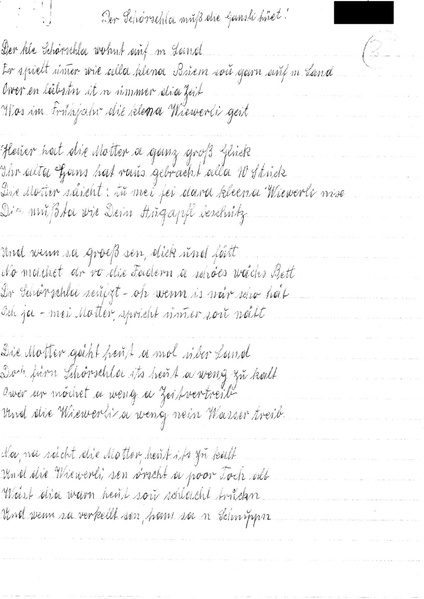 Der Schörschla muß die Gansli hüet!
Der kle Schörschla wohnt auf'm Land
Er spielt immer wie alla klena Buem sou garn auf'm Sand
Ower en läbstn it'n immer dia Zeit
Wos im Frühjahr die klena Wiewerli geit
Heuer hat die Motter a ganz groß Glück
Ihr alta Gans hat raus gebracht alla 10 Stück
Die Motter säicht: Du mei fei dara kleena Wiewerli nise
Die mußta wie Dein Augapfl beschütz
Und wenn sa groeß sen, dick und fätt
No machet dr vo die Fadern a schöes wächs Bett
Dr Schörschla seufzt - oh wenn is när scho hät
Och ja - mei Motter, spricht immer sou nätt
Die Motter gäht heut a mol über Land
Doch fürn Schörschla its heut a weng zu kalt
Ower ar möchet a weng a Zeitvertreib
Und die Wiewerli a weng nein Wasser treib
Na, na sächt die Motter heut its zu kalt
Und die Wiewerli sen örscht a poor Toch alt
Wäist dia warn heut sou schlacht trückn
Und wenn sa verkellt sen, ham sa n Schnuppn